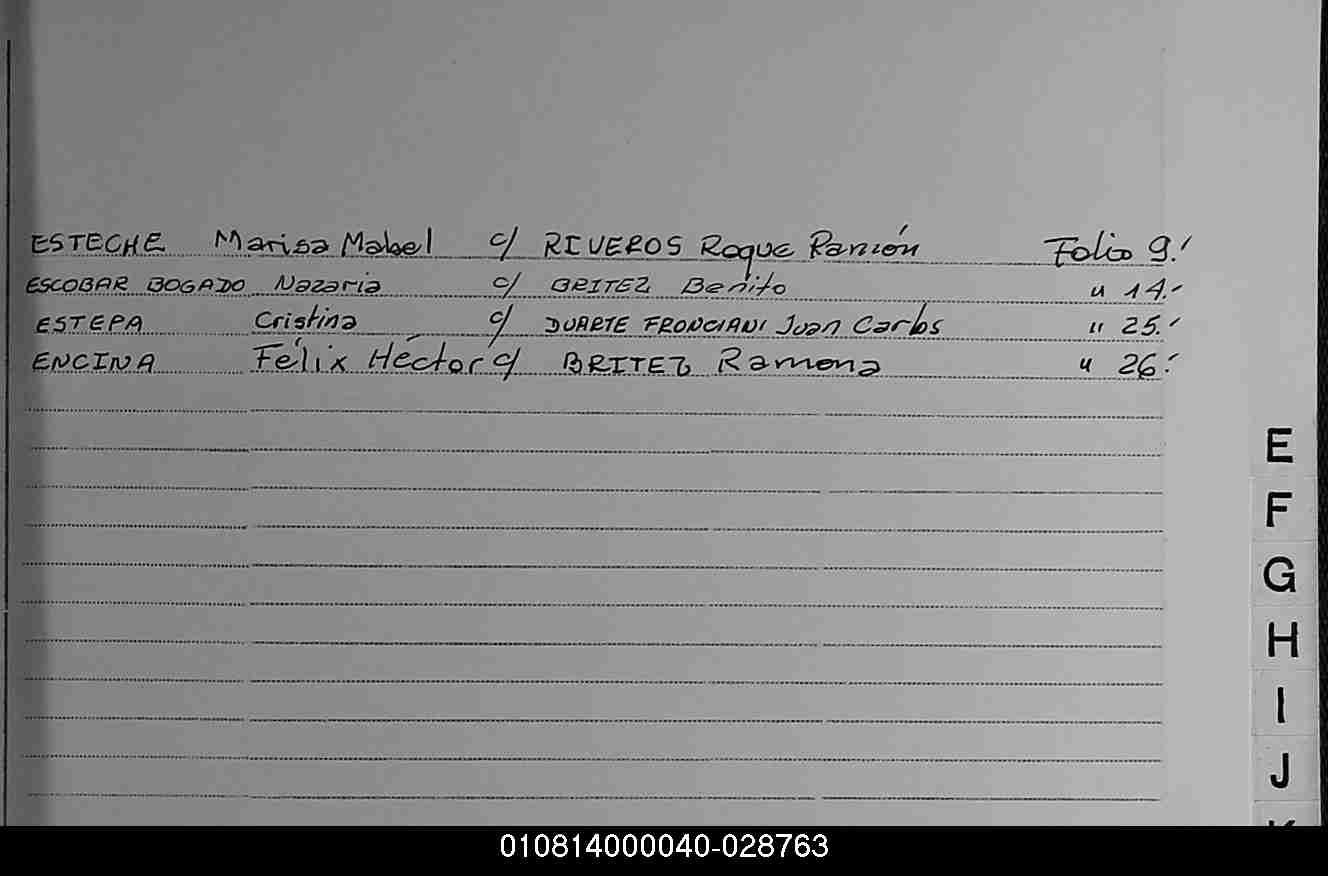 ESTECHE Marisa Mabel c/ RIVEROS Roque Ramón Folio 9.-
ESCOBAR BOGADO Nazaria c/ BRITEZ Benito " 14.-
ESTEPA Cristina c/ DUARTE FRONCIANI Juan Carlos " 25.-
ENCINA Félix Héctor c/ BRITEZ Ramona " 26.-
E
F
G
H
I
J
010814000040-028763